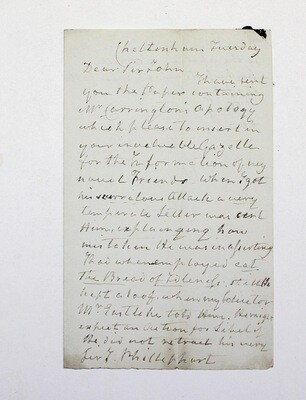 Cheltenham Tuesday
Dear Sir John
I have sent
you the Paper containing
Mr Carrington's Apology
which please to insert in
your invaluable Gazette
for the information of my
naval Friends. When I got
his scurrilous Attack a very
temperate Letter was sent
Him, explaining how
mistaken He was in asserting
That when employed eat
the Bread of Idleness,
kept aloof, when my
Mr told Him, He might
expect an Action for Libel if
He did not retract his very